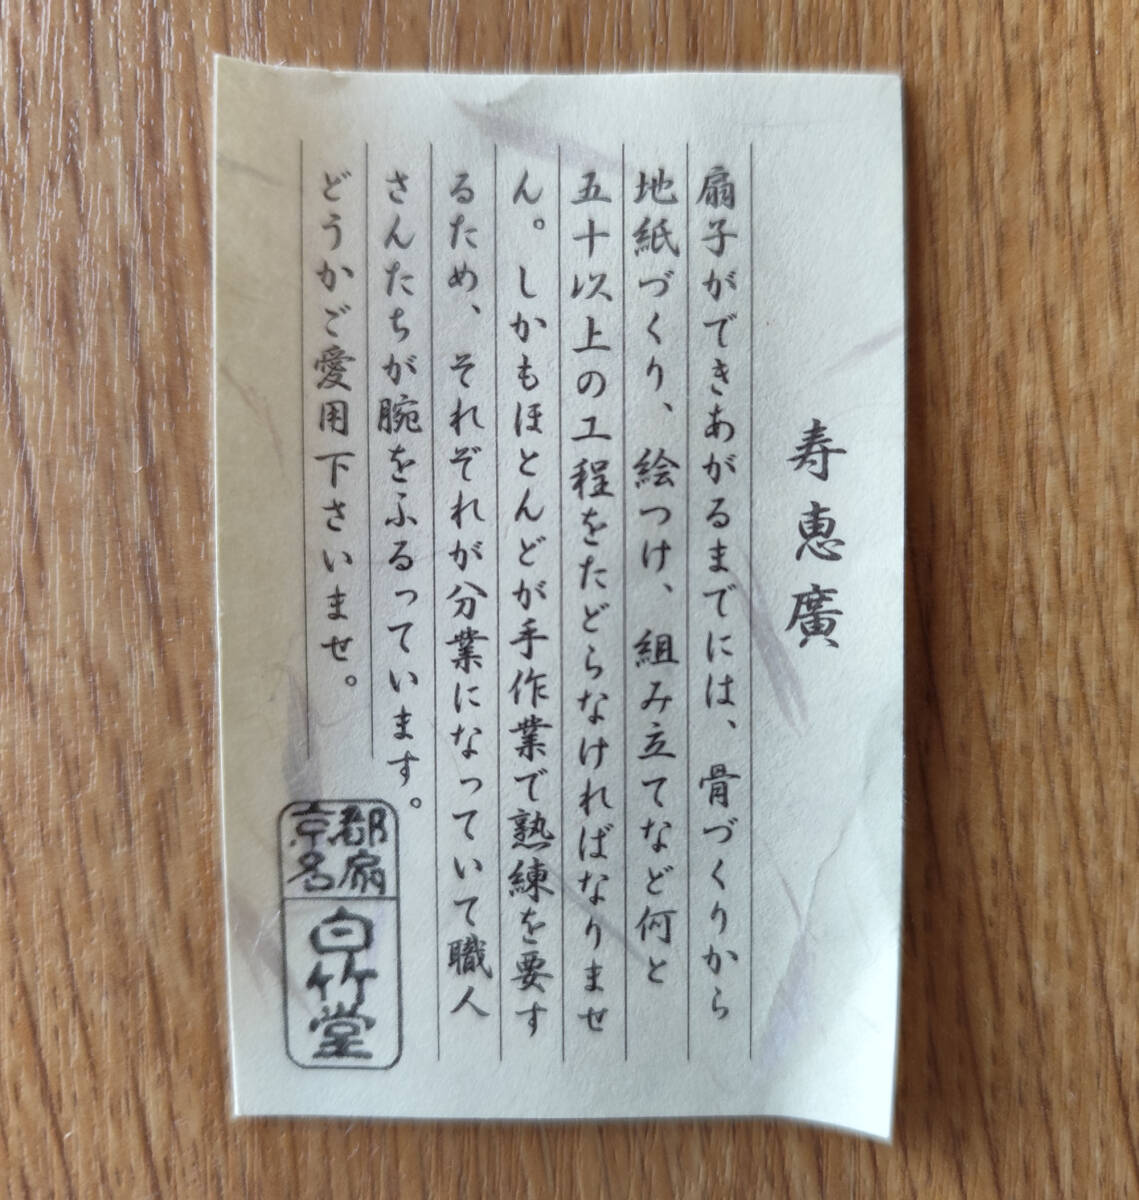 寿恵廣
扇子ができあがるまでには、骨づくりから
地紙づくり、絵つけ、組み立てなど何と
五十以上の工程をたどらなければなりませ
ん。しかもほとんどが手作業で熟練を要す
るため、それぞれが分業になっていて職人
さんたちが腕をふるっています。
どうかご愛用下さいませ。
京都
名扇
白竹堂